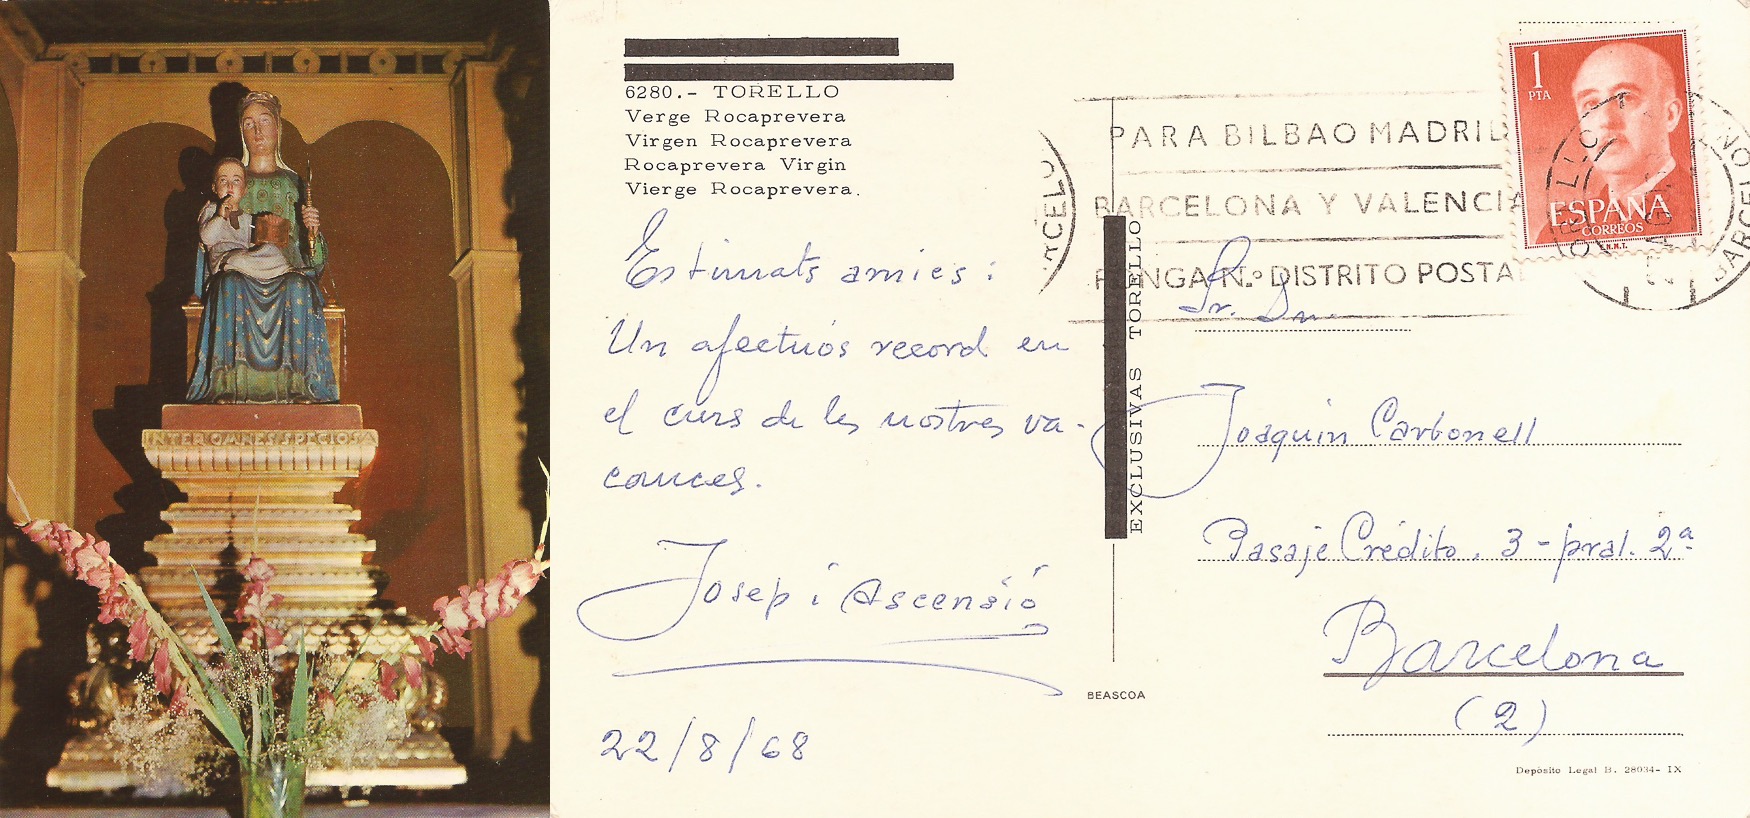 INTER OMNES SPECIOSA
6280.- TORELLO
Verge Rocaprevera
Virgen Rocaprevera
Rocaprevera Virgin
Vierge Rocaprevera.
Estimats amics:
Un afectuós record en
el curs de les nostres va-
cances.
Josep i Ascensió
22/8/68
EXCLUSIVAS TORELLO
BEASCOA
PARA BILBAO MADRID
BARCELONA Y VALENCIA
PONGA N.º DISTRITO POSTAL
1
PTA
ESPAÑA
CORREOS
F.N.M.T.
BARCELO
Sr. Dn.
Joaquin Carbonell
Pasaje Crédito. 3 - pral. 2ª
Barcelona
(2)
Depósito Legal B. 28034- IX